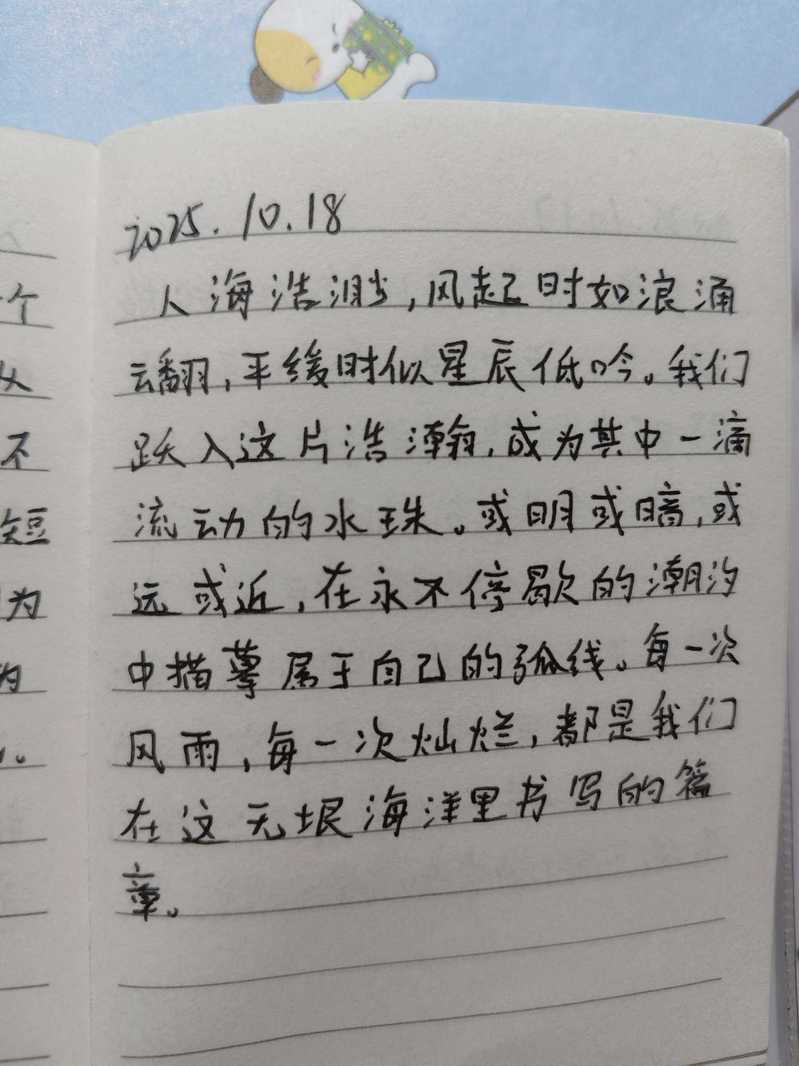 2025.10.18
人海浩渺,风起时如浪涌
云翻,平缓时似星辰低吟。我们
跃入这片浩瀚,成为其中一滴
流动的水珠。或明或暗,或
远或近,在永不停歇的潮汐
中描摹属于自己的弧线。每一次
风雨,每一次灿烂,都是我们
在这无垠海洋里书写的篇
章。
个
不
短
为